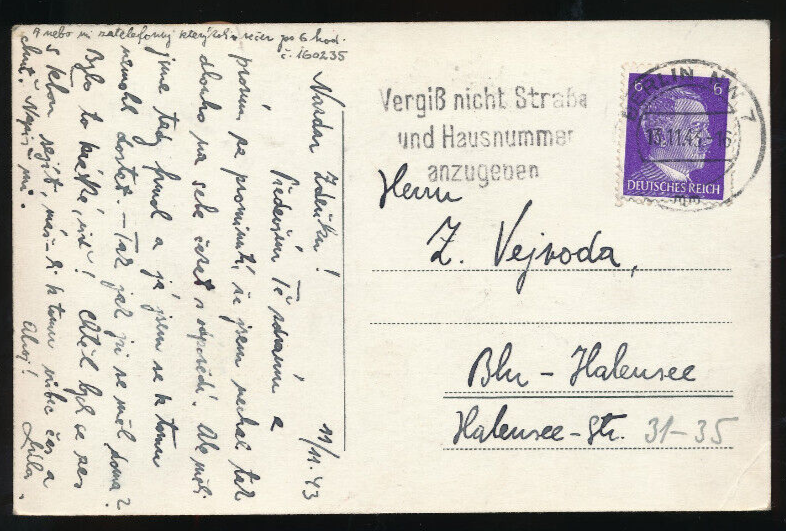 a nebo mi zatelefonuj kterýkoliv večer po 6 hod.
č. 160235
11/11. 43
Nazdar Zdeňku!
Předevšim Tě zdravím a
prosím za prominutí, že jsem nechal tak
dlouho na sebe čekat s odpovědí. Ale měli
jsme tady fmol a já jsem se k tomu
nemohl dostat. – Tak jak jsi se měl doma?
Bylo to krátké, viď! Chtěl bych se zas
s Tebou sejít, máš-li k tomu vůbec čas a
chuť. Napiš mi. Ahoj! Lála.
Vergiß nicht Straße
und Hausnummer
anzugeben
BERLIN NW 7
13.11.43.-16
6 6
DEUTSCHES REICH
Herrn
Z. Vejvoda,
Bln – Halensee
Halensee-Str. 31-35